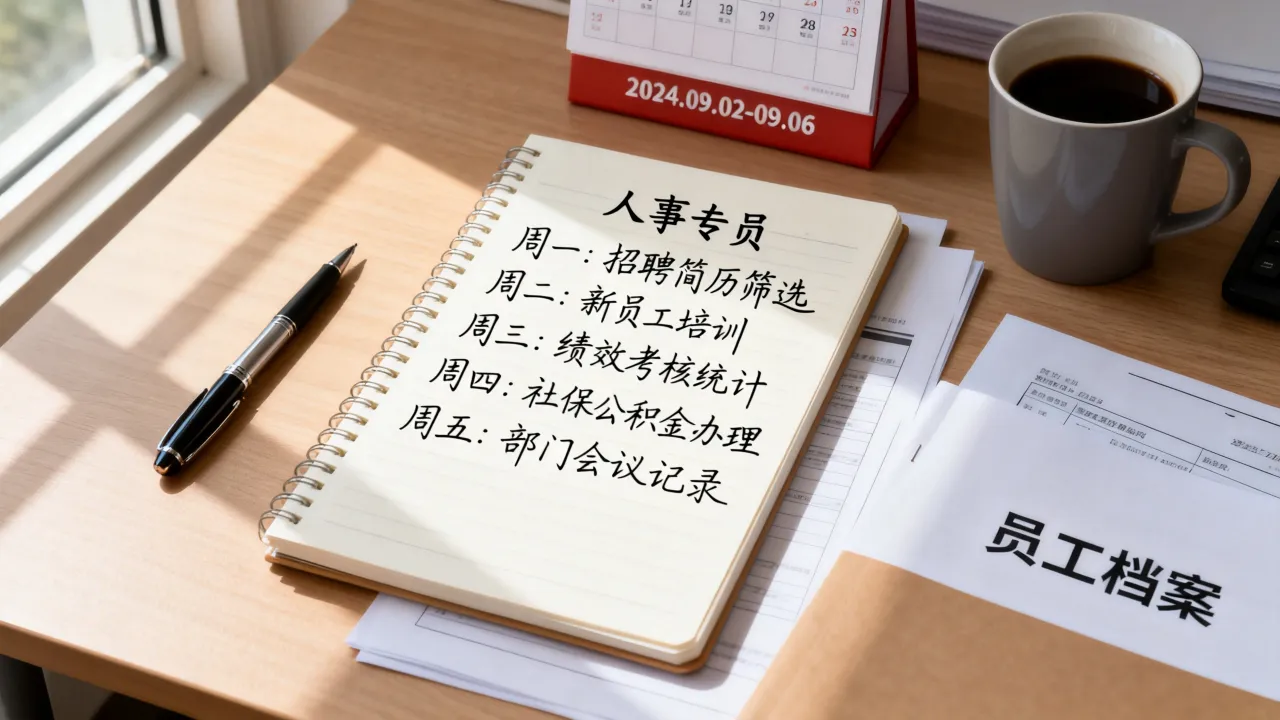 2024.09.02-09.06
人事专员
周一：招聘简历筛选
周二：新员工培训
周三：绩效考核统计
周四：社保公积金办理
周五：部门会议记录
员工档案